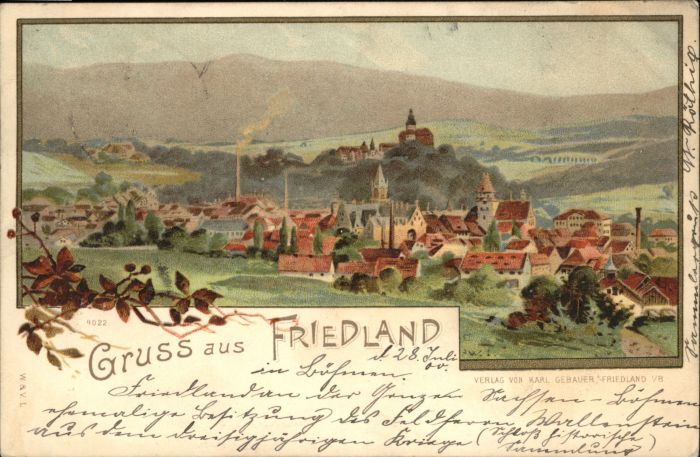 4022
GRUSS AUS FRIEDLAND
d 28. Juli
00.
in Böhmen
VERLAG VON KARL GEBAUER, FRIEDLAND I/B
W. & V. L.
Friedland an der Grenze Sachsen - Böhmen
ehemalige Besitzung des Feldherrn Wallenstein
aus dem dreißigjährigen Kriege (Schloß historische
Sammlung